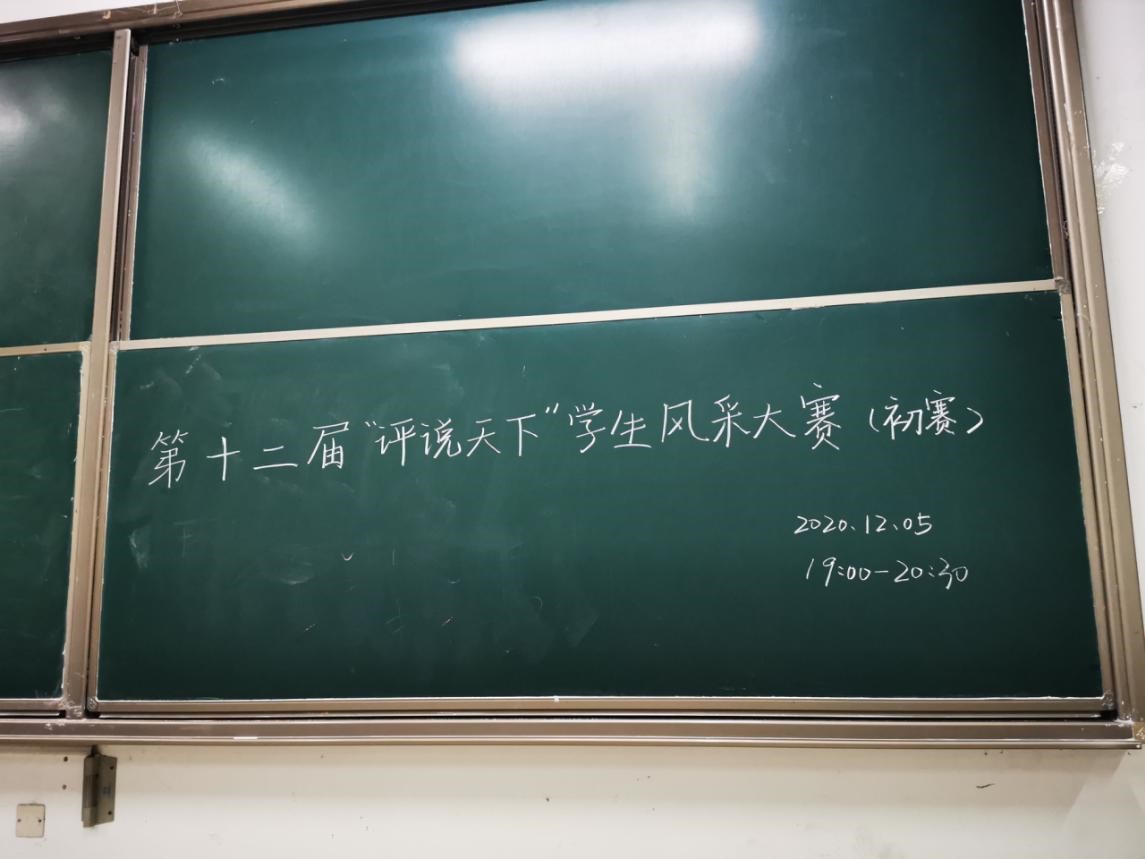 第十二届“评说天下”学生风采大赛（初赛）
2020.12.05
19:00-20:30